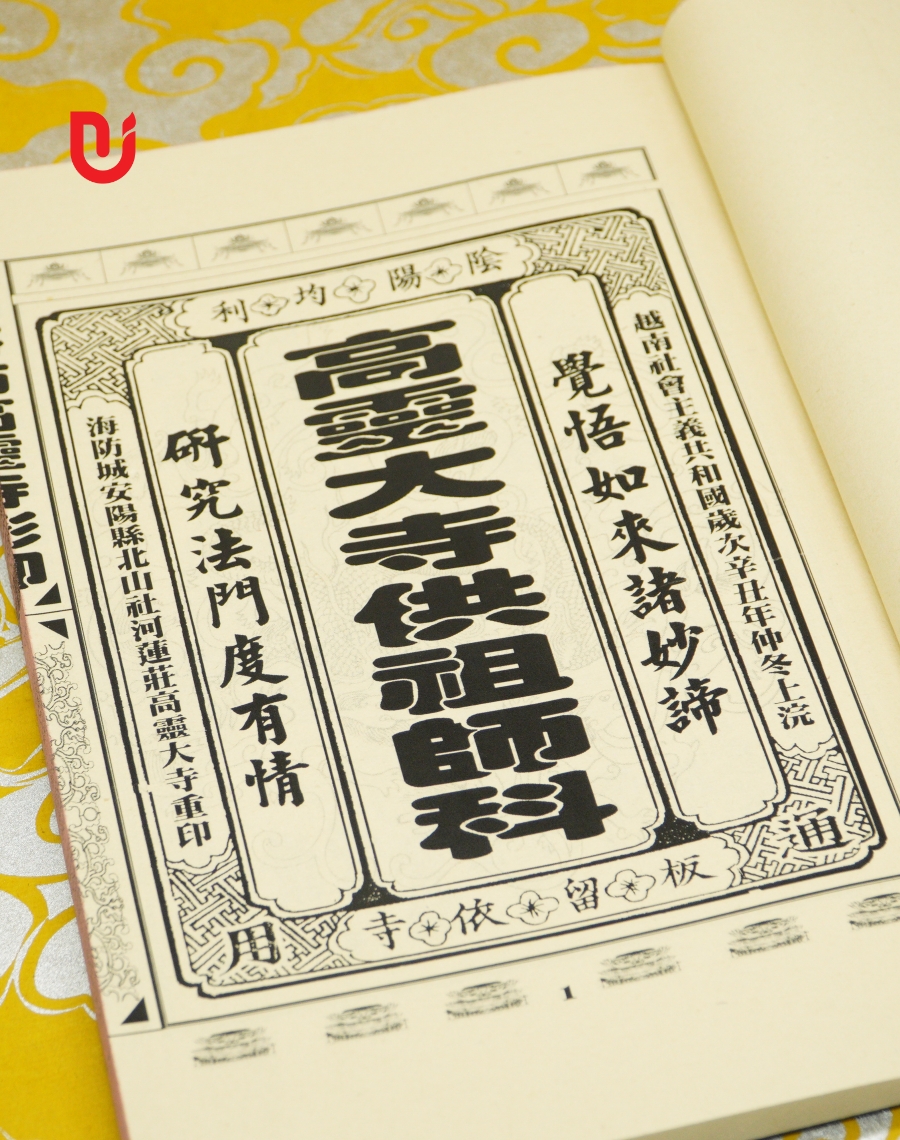 陰陽均利
越南社會主義共和國歲次辛丑年仲冬上浣
覺悟如來諸妙諦
高靈大寺供祖師科
硏究法門度有情
海防城安陽縣北山社河蓮莊高靈大寺重印
通
板留依寺
用
1